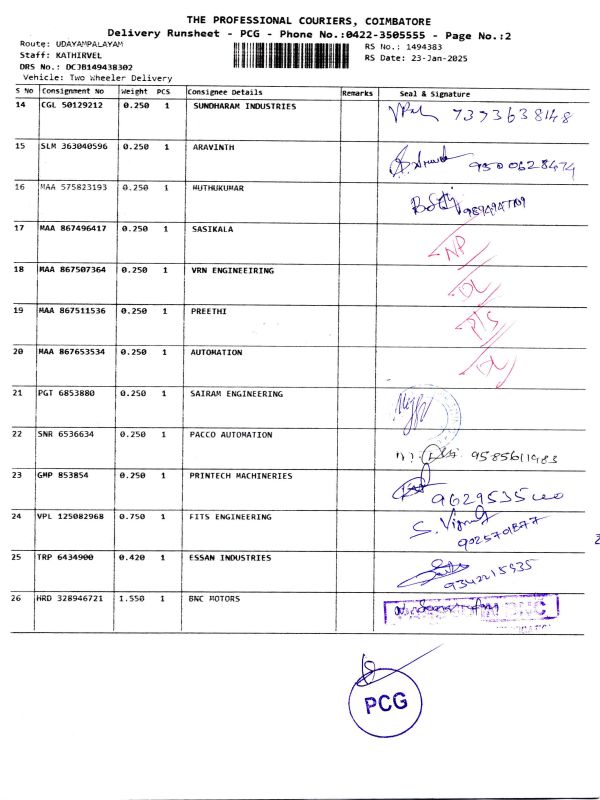 THE PROFESSIONAL COURIERS, COIMBATORE
Delivery Runsheet - PCG - Phone No.:0422-3505555 - Page No.:2
Route: UDAYAMPALAYAM RS No.: 1494383
Staff: KATHIRVEL RS Date: 23-Jan-2025
DRS No.: DCJB149438302
Vehicle: Two Wheeler Delivery
S No Consignment No Weight PCS Consignee Details Remarks Seal & Signature
14 CGL 50129212 0.250 1 SUNDHARAM INDUSTRIES 7373638148
15 SLM 363040596 0.250 1 ARAVINTH 9500628474
16 MAA 575823193 0.250 1 MUTHUKUMAR
17 MAA 867496417 0.250 1 SASIKALA NP
18 MAA 867507364 0.250 1 VRN ENGINEEIRING DL
19 MAA 867511536 0.250 1 PREETHI P/S
20 MAA 867653534 0.250 1 AUTOMATION DL
21 PGT 6853880 0.250 1 SAIRAM ENGINEERING
22 SNR 6536634 0.250 1 PACCO AUTOMATION
23 GMP 853854 0.250 1 PRINTECH MACHINERIES
24 VPL 125082968 0.750 1 FITS ENGINEERING
25 TRP 6434900 0.420 1 ESSAN INDUSTRIES
26 HRD 328946721 1.550 1 BNC MOTORS
PCG